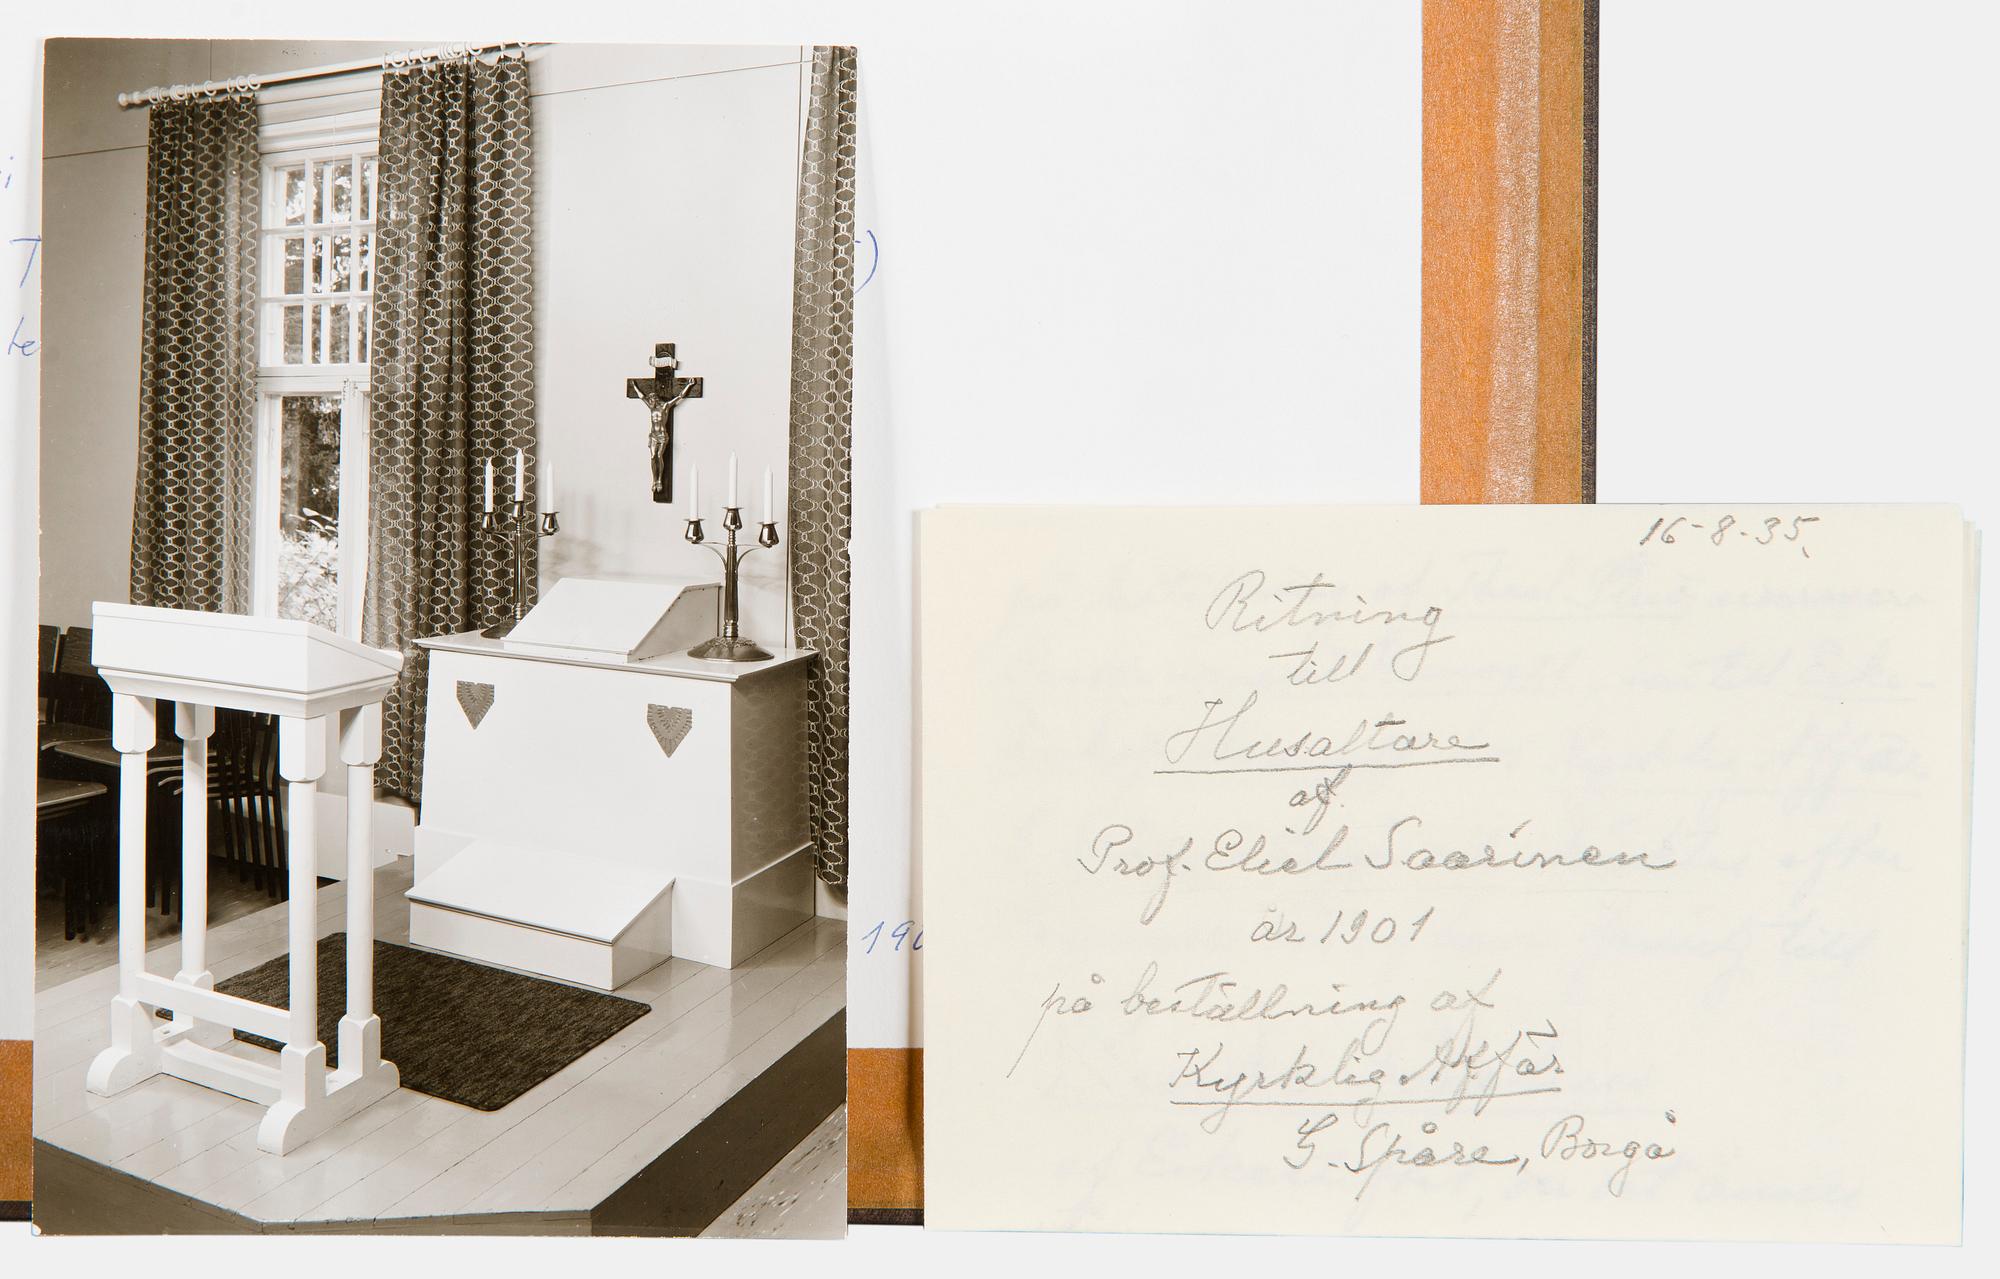 16-8-35.
Ritning
till
Husaltare
af
Prof. Eliel Saarinen
år 1901
på beställning af
Kyrklig Affär
G. Spåre, Borgå